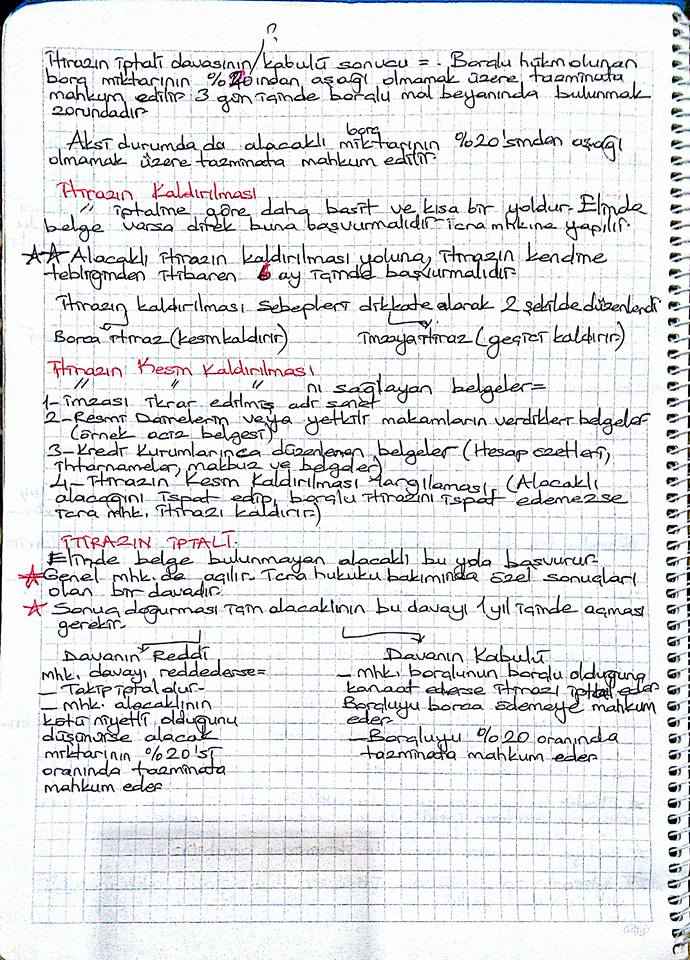 ?
İtirazın iptali davasının / kabulü sonucu = . Borçlu hükmolunan
borç miktarının %20'ından aşağı olmamak üzere, tazminata
mahkum edilir. 3 gün içinde borçlu mal beyanında bulunmak
zorundadır.
Aksi durumda da alacaklı borç miktarının %20'sinden aşağı
olmamak üzere tazminata mahkum edilir.
İtirazın Kaldırılması
" iptaline göre daha basit ve kısa bir yoldur. Elinde
belge varsa direk buna başvurmalıdır icra mhkine yapılır.
Alacaklı itirazın kaldırılması yoluna, itirazın kendine
tebliğinden itibaren 6 ay içinde başvurmalıdır.
İtirazın kaldırılması sebepleri dikkate alarak 2 şekilde düzenlendi
Borca itiraz (kesin kaldırır) İmzaya itiraz (geçici kaldırır)
İtirazın Kesin Kaldırılması
" " " nı sağlayan belgeler=
1- imzası ikrar edilmiş adi senet
2- Resmi Dairelerin veya yetkili makamların verdikleri belgeler
(örnek aciz belgesi)
3- Kredi Kurumlarınca düzenlenen belgeler (Hesap özetleri,
ihtarnameler, makbuz ve belgeler)
4- İtirazın Kesin Kaldırılması Yargılaması, (Alacaklı
alacağını ispat edip, borçlu itirazını ispat edemezse
icra mhk. itirazı kaldırır)
İTİRAZIN İPTALİ.
Elinde belge bulunmayan alacaklı bu yola başvurur.
Genel mhk. de açılır. İcra hukuku bakımında özel sonuçları
olan bir davadır.
Sonuç doğurması için alacaklının bu davayı 1 yıl içinde açması
gerekir.
Davanın Reddi
mhk. davayı reddederse=
- Takip iptal olur-
- mhk. alacaklının
kötü niyetli olduğunu
düşünürse alacak
miktarının %20'si
oranında tazminata
mahkum eder
Davanın Kabulü
- mhk. borçlunun borçlu olduğuna
kanaat ederse itirazı iptal eder
Borçluyu borca ödemeye mahkum
eder.
- Borçluyu %20 oranında
tazminata mahkum eder